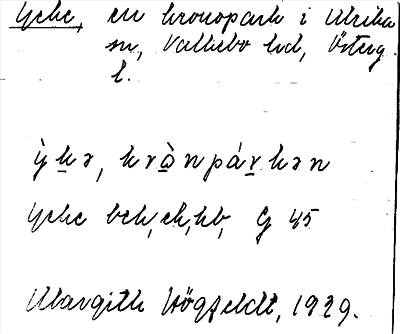 Ycke, en kronopark i Ulrika
sn, Valkebo hd, Österg.
l.
ỳkə, krònpárkən
Ycke bek, ek, hb, G 45
Margith Högfeldt, 1929.